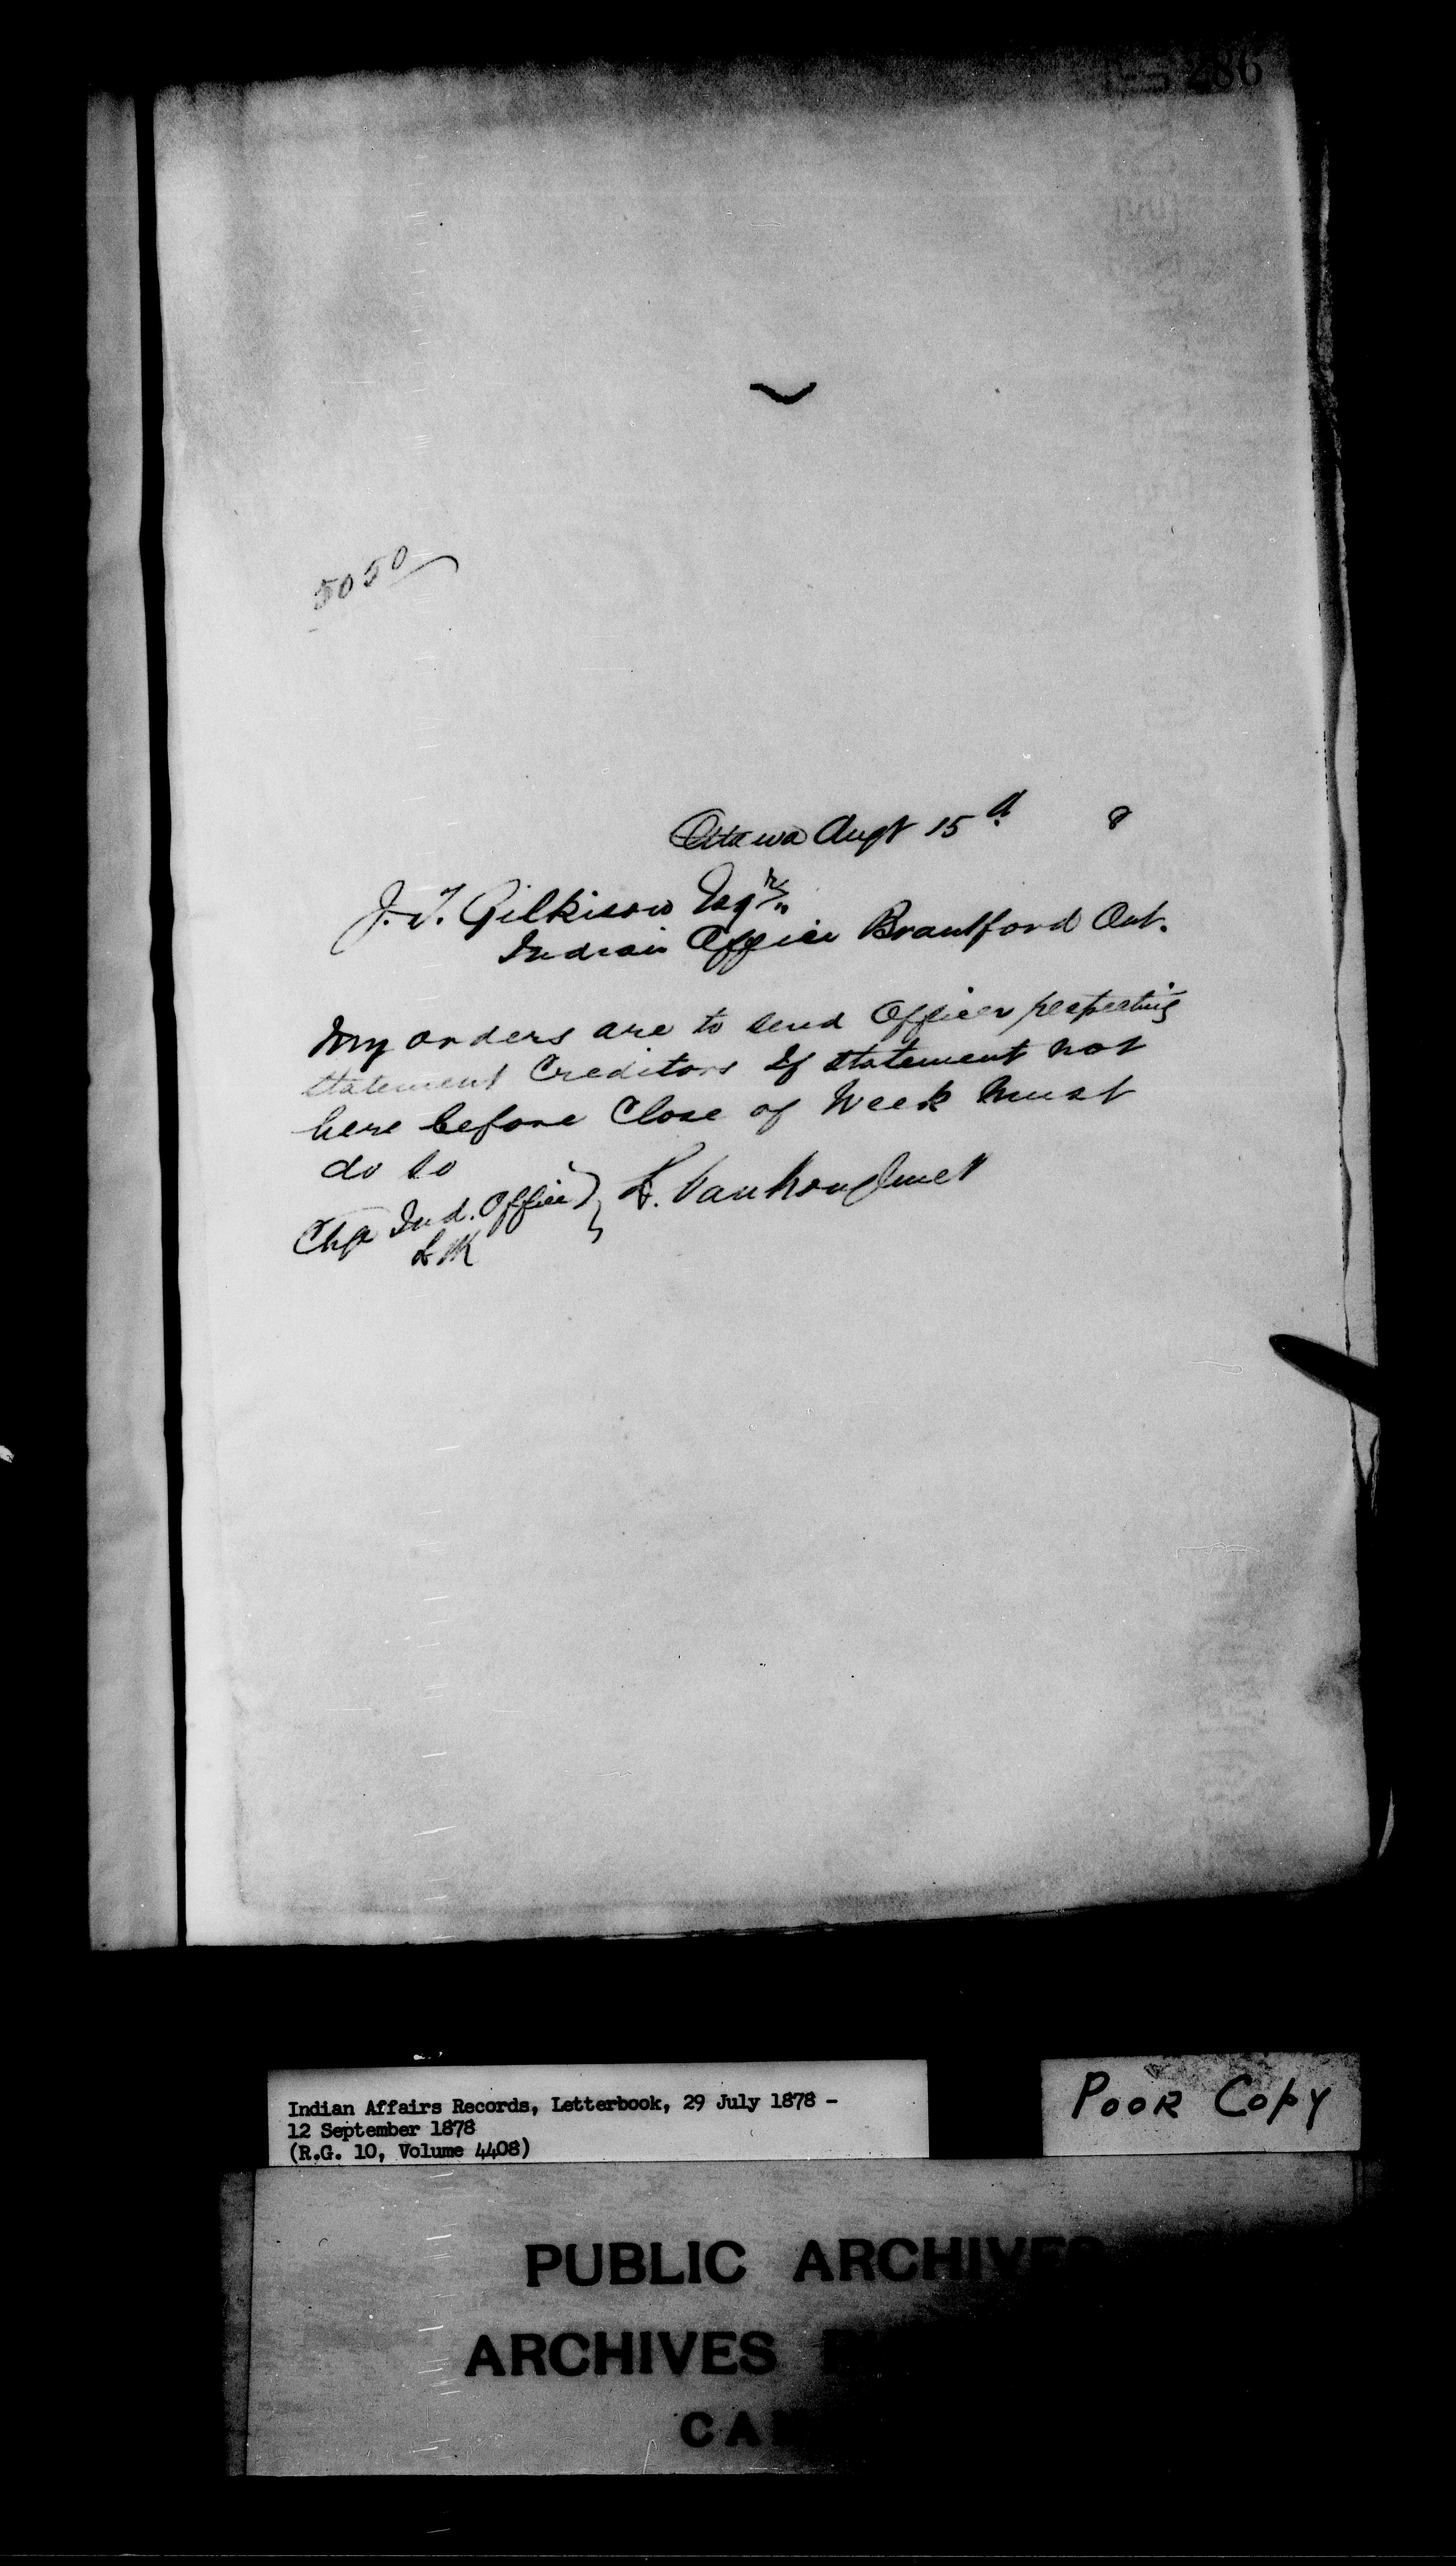 286
5050
Ottawa Augt 15th 8
J. T. Gilkison Esqre
Indian Office Brantford Ont.
My orders are to send Officer respecting
statement Creditors If statement not
here before Close of Week must
do so
Chge Ind. Office } L. Vankoughnet
LVK
Indian Affairs Records, Letterbook, 29 July 1878 -
12 September 1878
(R.G. 10, Volume 4408)
POOR COPY
PUBLIC ARCHIVES
ARCHIVES
CAN